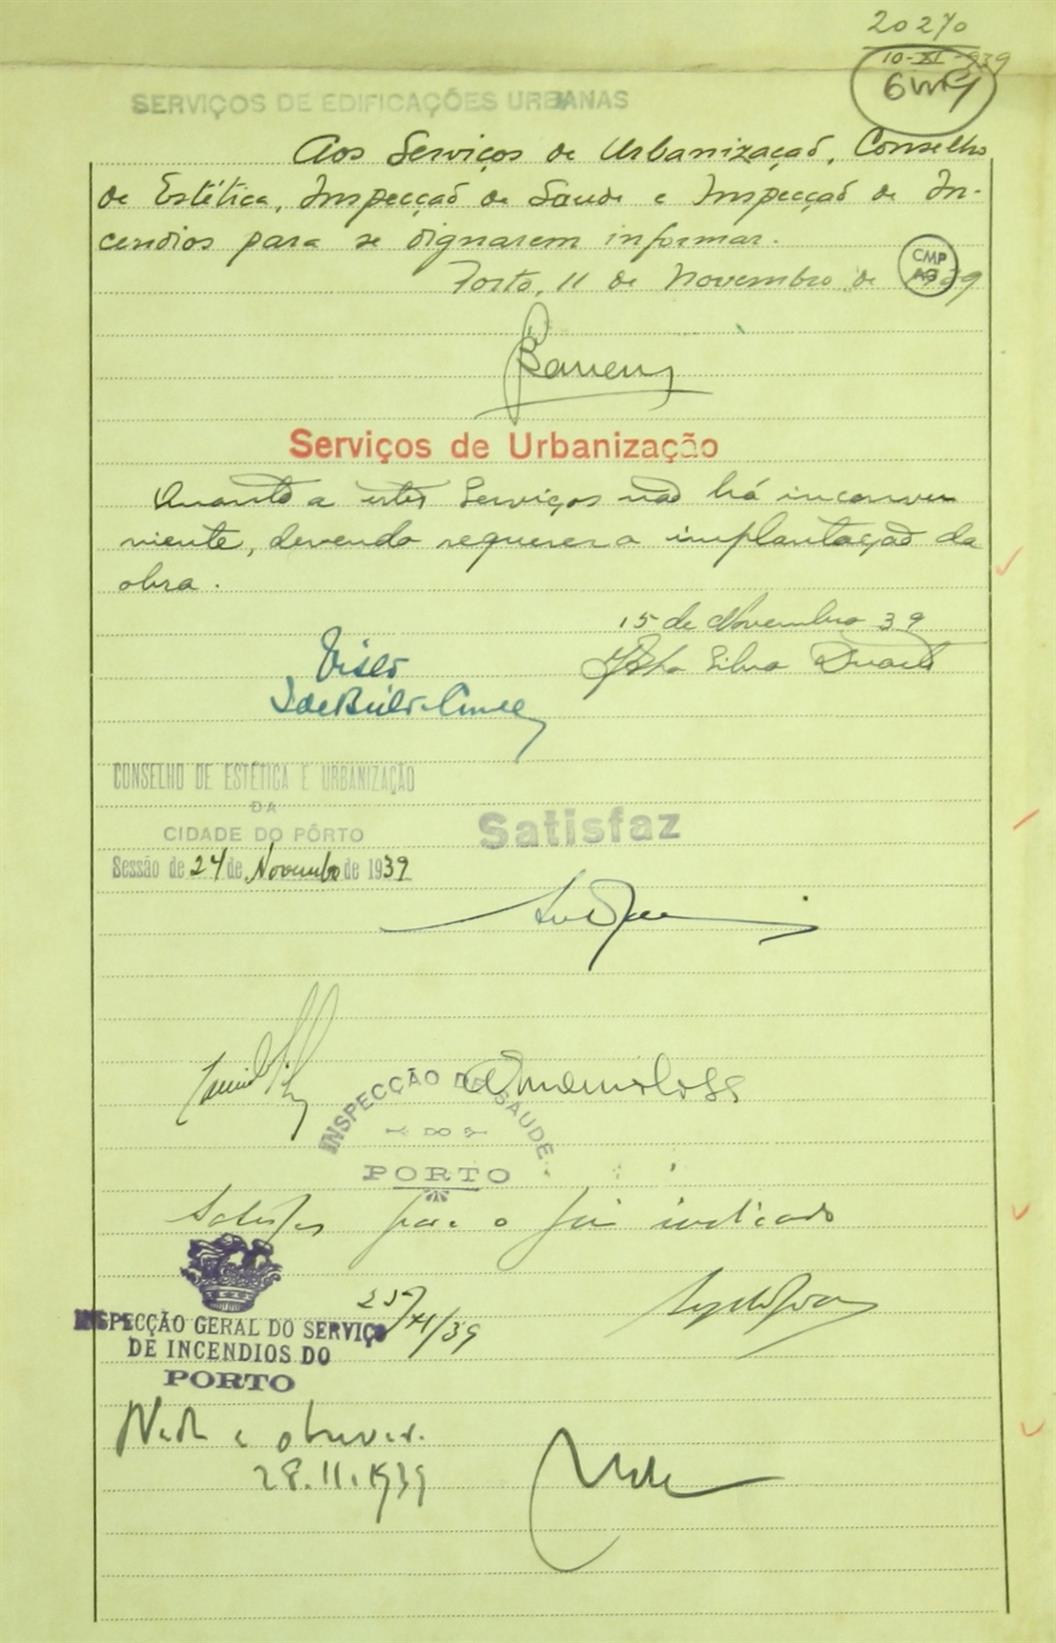 20270
10-XI-939
SERVIÇOS DE EDIFICAÇÕES URBANAS
Aos Serviços de Urbanização, Conselho
de Estética, Inspecção de Saude e Inspecção de In-
cendios para se dignarem informar.
Porto, 11 de Novembro de 1939
CMP
AG
Serviços de Urbanização
Quanto a estes Serviços não há inconve
niente, devendo requerer a implantação da
obra.
15 de Novembro 39
Silva Duarte
Visto
CONSELHO DE ESTÉTICA E URBANIZAÇÃO
DA
CIDADE DO PÔRTO
Sessão de 24 de Novembro de 1939
Satisfaz
INSPECÇÃO DE SAUDE
DO
PORTO
Satisfaz para o fim indicado
25/XI/39
INSPECÇÃO GERAL DO SERVIÇO
DE INCENDIOS DO
PORTO
Nada a observar.
28.11.1939